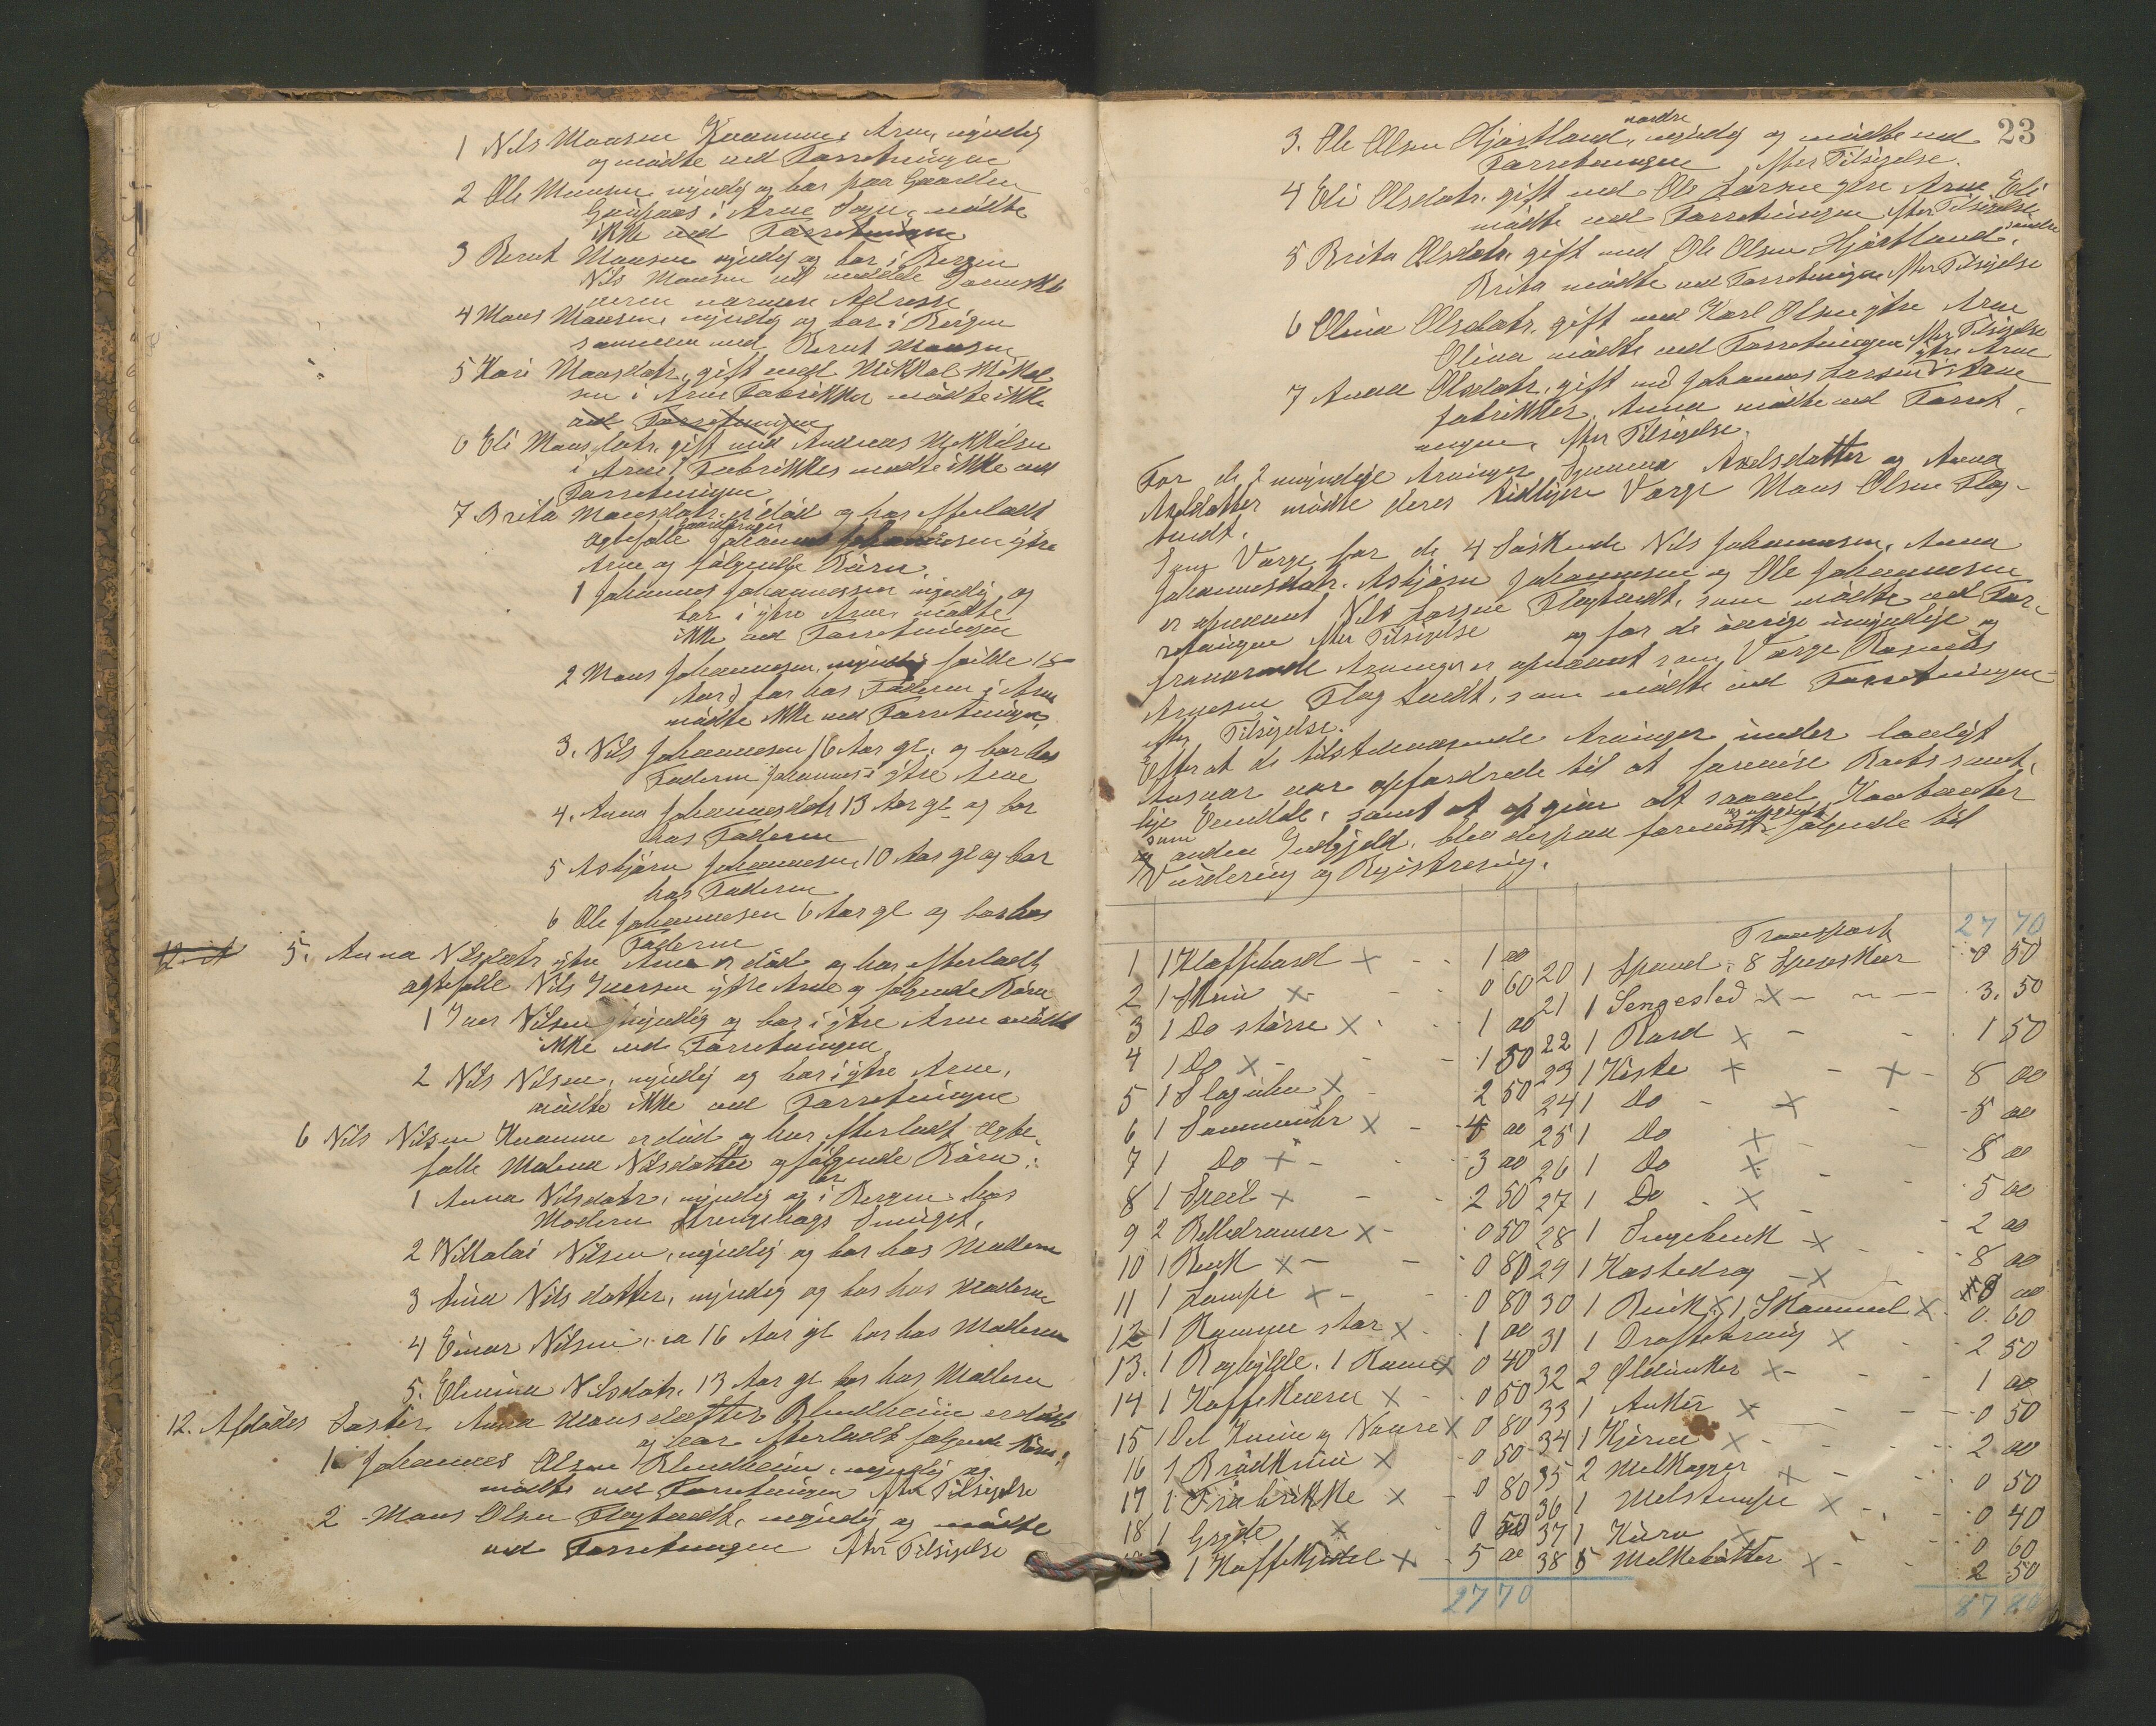 1 Nils Monsen Kvamme, Arne, myndig
og mødte ved Forretningen
2 Ole Monsen myndig og bor paa Gaarden
i Arne Sogn, mødte
ikke ved Forretningen
3 Bernt Monsen myndig og bor i Bergen
Nils Monsen vil meddele
nærmere Adresse
4 Mons Monsen, myndig og bor i Bergen
sammen med Bernt Monsen
5 Kari Monsdatr. gift med Mikkel Mikkel
sen i Arne Fabrikker mødte ikke
ved Forretningen
6 Eli Monsdatr. gift med Andreas Mikkelsen
i Arne Fabrikker mødte ikke ved
Forretningen
7 Brita Monsdatr. er død og har efterladt
Ægtefælle Gaardbruger Johannes Johannessen ytre
Arne og følgende Børn.
1 Johannes Johannessen myndig og
bor i ytre Arne, mødte
ikke ved Forretningen
2 Mons Johannesen, myndig fyldte 18
Aar, bor hos Faderen i Arne
mødte ikke ved Forretningen,
3. Nils Johannesen 16 Aar gl. og bor hos
Faderen Johannes i ytre Arne
4. Anna Johannesdatr 13 Aar gl. og bor
hos Faderen
5 Asbjørn Johannesen, 10 Aar gl og bor
hos Faderen
6 Ole Johannesen 6 Aar gl og bor hos
Faderen
5. Anna Nilsdatr ytre Arne er død og har efterladt
Ægtefælle Nils Iversen ytre Arne og følgende Børn
1 Iver Nilsen myndig og bor i ytre Arne mødte
ikke ved Forretningen
2 Nils Nilsen, myndig og bor i ytre Arne,
mødte ikke ved Forretningen
6 Nils Nilsen Kvamme er død og har efterladt Ægte-
fælle Malena Nilsdatter og følgende Børn:
1 Anna Nilsdatr, myndig og bor i Bergen hos
Moderen Smuget,
2 Nikolai Nilsen, myndig og bor hos Moderen
3 Nilsdatter, myndig og bor hos Moderen
4 Einar Nilsen, ca 16 Aar gl bor hos Moderen
5. Nilsdatr. 13 Aar gl bor hos Moderen
12. Afdødes Søster Anna Monsdatter Blindheim er død
og har efterladt følgende Børn:
1. Johannes Olsen Blindheim, myndig og
mødte ved Forretningen efter Tilsigelse
2 Mons Olsen Flagtvedt, myndig og mødte
ved Forretningen efter Tilsigelse
23
3. Ole Olsen Hjortland, nordre, myndig og mødte ved
Forretningen efter Tilsigelse.
4 Eli Olsdatr. gift med Ole Larsen ytre Arne Eli
mødte ved Forretningen efter Tilsigelse
5 Brita Olsdatr. gift med Ole Olsen Hjortland, indre
Brita mødte ved Forretningen efter Tilsigelse
6 Olina Olsdatr. gift med Karl Olsen ytre Arne
Olina mødte ved Forretningen efter Tilsigelse
7 Anna Olsdatr. gift med Johannes Larsen ytre Arne
fabrikker, Anna mødte ved Forret-
ningen, efter Tilsigelse.
For de 2 umyndige Arvinger Axelsdatter og Anna
Axelsdatter mødte deres tidligere Værge Mons Olsen Flag-
tvedt.
Som Værge for de 4 Søskende Nils Johannesen, Anna
Johannesdatr. Asbjørn Johannesen og Ole Johannesen
er opnævnt Nils Larsen Flagtvedt, som mødte ved For-
retningen efter Tilsigelse og for de øvrige umyndige og
fraværende Arvinger er opnævnt som Værge Rasmus
Arnesen Flagtvedt, som mødte ved Forretningen
efter Tilsigelse.
Efter at de tilstedeværende Arvinger under lovligt
Ansvar var opfordrede til at fremvise Boets samt-
lige Eiendele, samt at opgive alt saavel Haandbreve
som anden Indgjæld, blev derpaa forevist og opgivet følgende til
Vurdering og Registrering.
1 1 Klaffebord × 1 00
2 1 Skrin × 0 60
3 1 Do større × 1 00
4 1 Do × 1 50
5 1 Slaguhr × 2 50
6 1 × 4 00
7 1 Do × 3 00
8 1 Speil × 2 50
9 2 Billedramer × 0 50
10 1 Benk × 0 80
11 1 Lampe × 0 80
12 1 stor × 1 00
13. 1 Boghylde, 1 × 0 40
14 1 Kaffekværn × 0 50
15 1 Del Knive og × 0 80
16 1 × 0 50
17 1 × 0 80
18 1 Gryde × 0 50
1 Kaffekjedel × 5 00
27 70
Transport 27 70
20 1 Spand, 8 Speseskeer 0 50
21 1 Sengested × 3. 50
22 1 Bord × 1 50
23 1 Kiste × 8 00
24 1 Do × 5 00
25 1 Do × 8 00
26 1 Do × 5 00
27 1 Do × 2 00
28 1 Sengebenk × 8 00
29 1 Kastedrag × 8 00
30 1 Benk × 1 Skammel × 0. 60
31 1 × 2 50
32 2 Øldunker × 1 00
33 1 Anker × 0 50
34 1 Kjerne × 2 00
35 2 Melkopper × 0 50
36 1 Melstampe × 0 40
37 1 Kurv × 0 60
38 5 Melkebøtter × 2 50
87